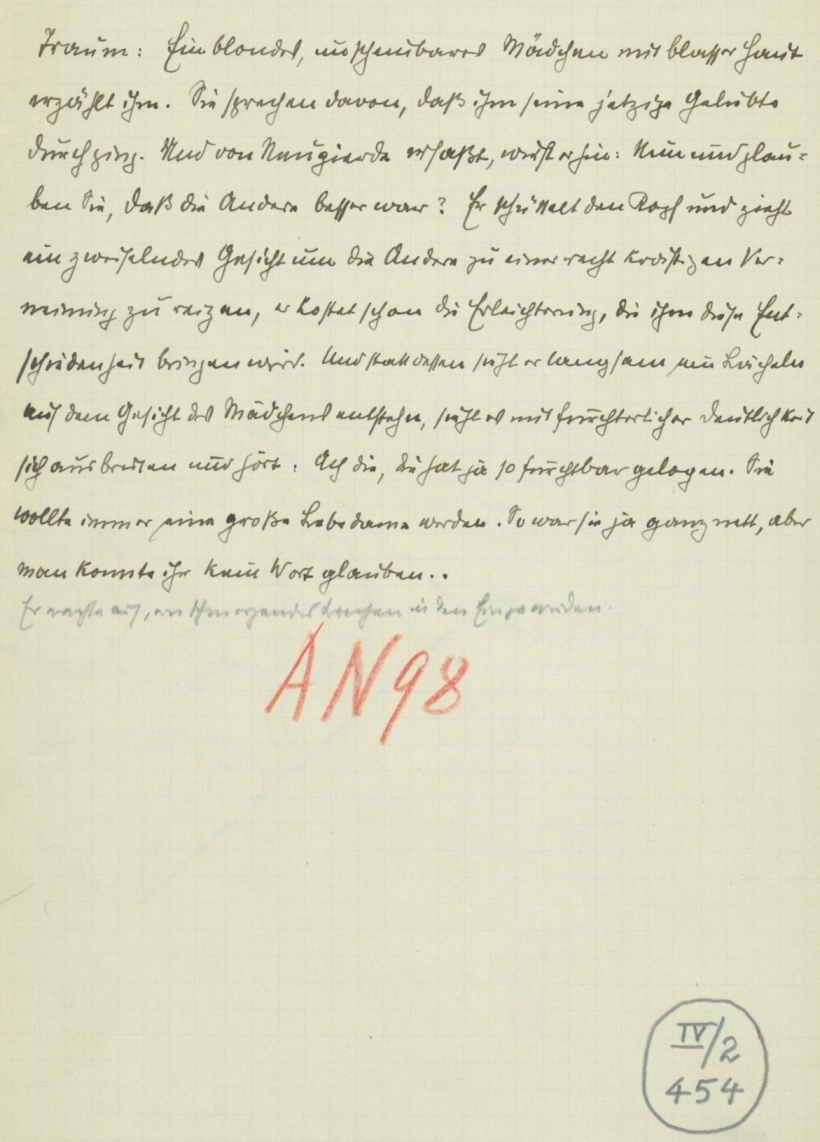 Traum: Ein blondes, unscheinbares Mädchen mit blasser Haut
erzählt ihm. Sie sprechen davon, daß ihm seine jetzige Geliebte
durchging. Und von Neugierde erfaßt, wirft er hin: Nun und glau=
ben Sie, daß die Andere besser war? Er schüttelt den Kopf und zieht
ein zweifelndes Gesicht um die Andere zu einer recht kräftigen Ver=
neinung zu reizen, er kostet schon die Erleichterung, die ihm diese Ent=
schiedenheit bringen wird. Und statt dessen sieht er langsam ein Lächeln
auf dem Gesicht des Mädchens entstehn, sieht es mit fürchterlicher Deutlichkeit
sich ausbreiten und hört: Ach die, die hat ja so furchtbar gelogen. Sie
wollte immer eine große Lebedame werden. So war sie ja ganz nett, aber
man konnte ihr kein Wort glauben..
Er wachte auf, ein schmerzendes in den Eingeweiden.
AN 98
IV/2
454